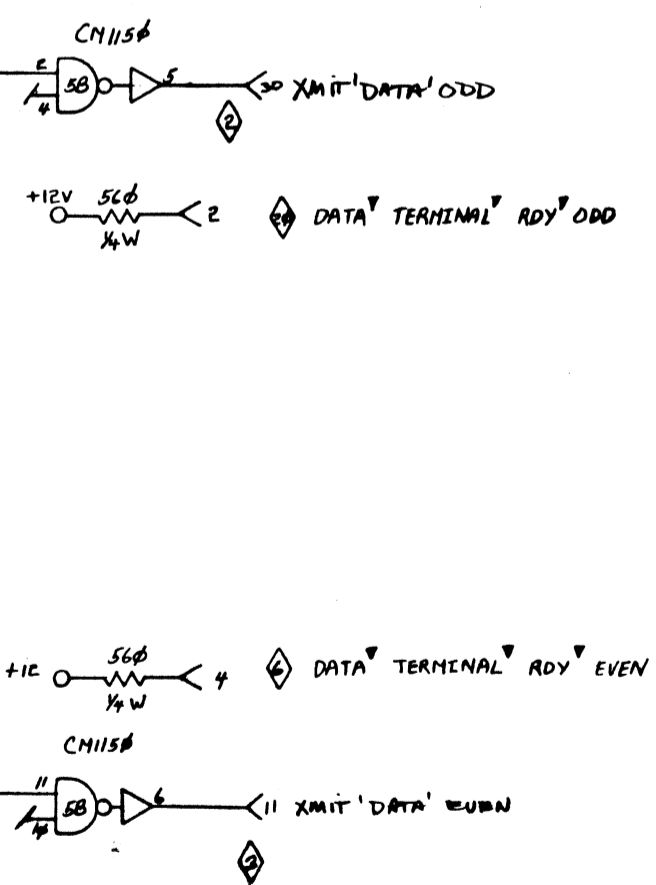 CM115φ
2 5B 5 30 XMIT 'DATA' ODD
4
2
+12V 56φ 2 DATA▼ TERMINAL▼ RDY▼ ODD
¼W
56φ
+12 4 6 DATA▼ TERMINAL▼ RDY▼ EVEN
¼W
CM115φ
11 5B 6 11 XMIT 'DATA' EVEN